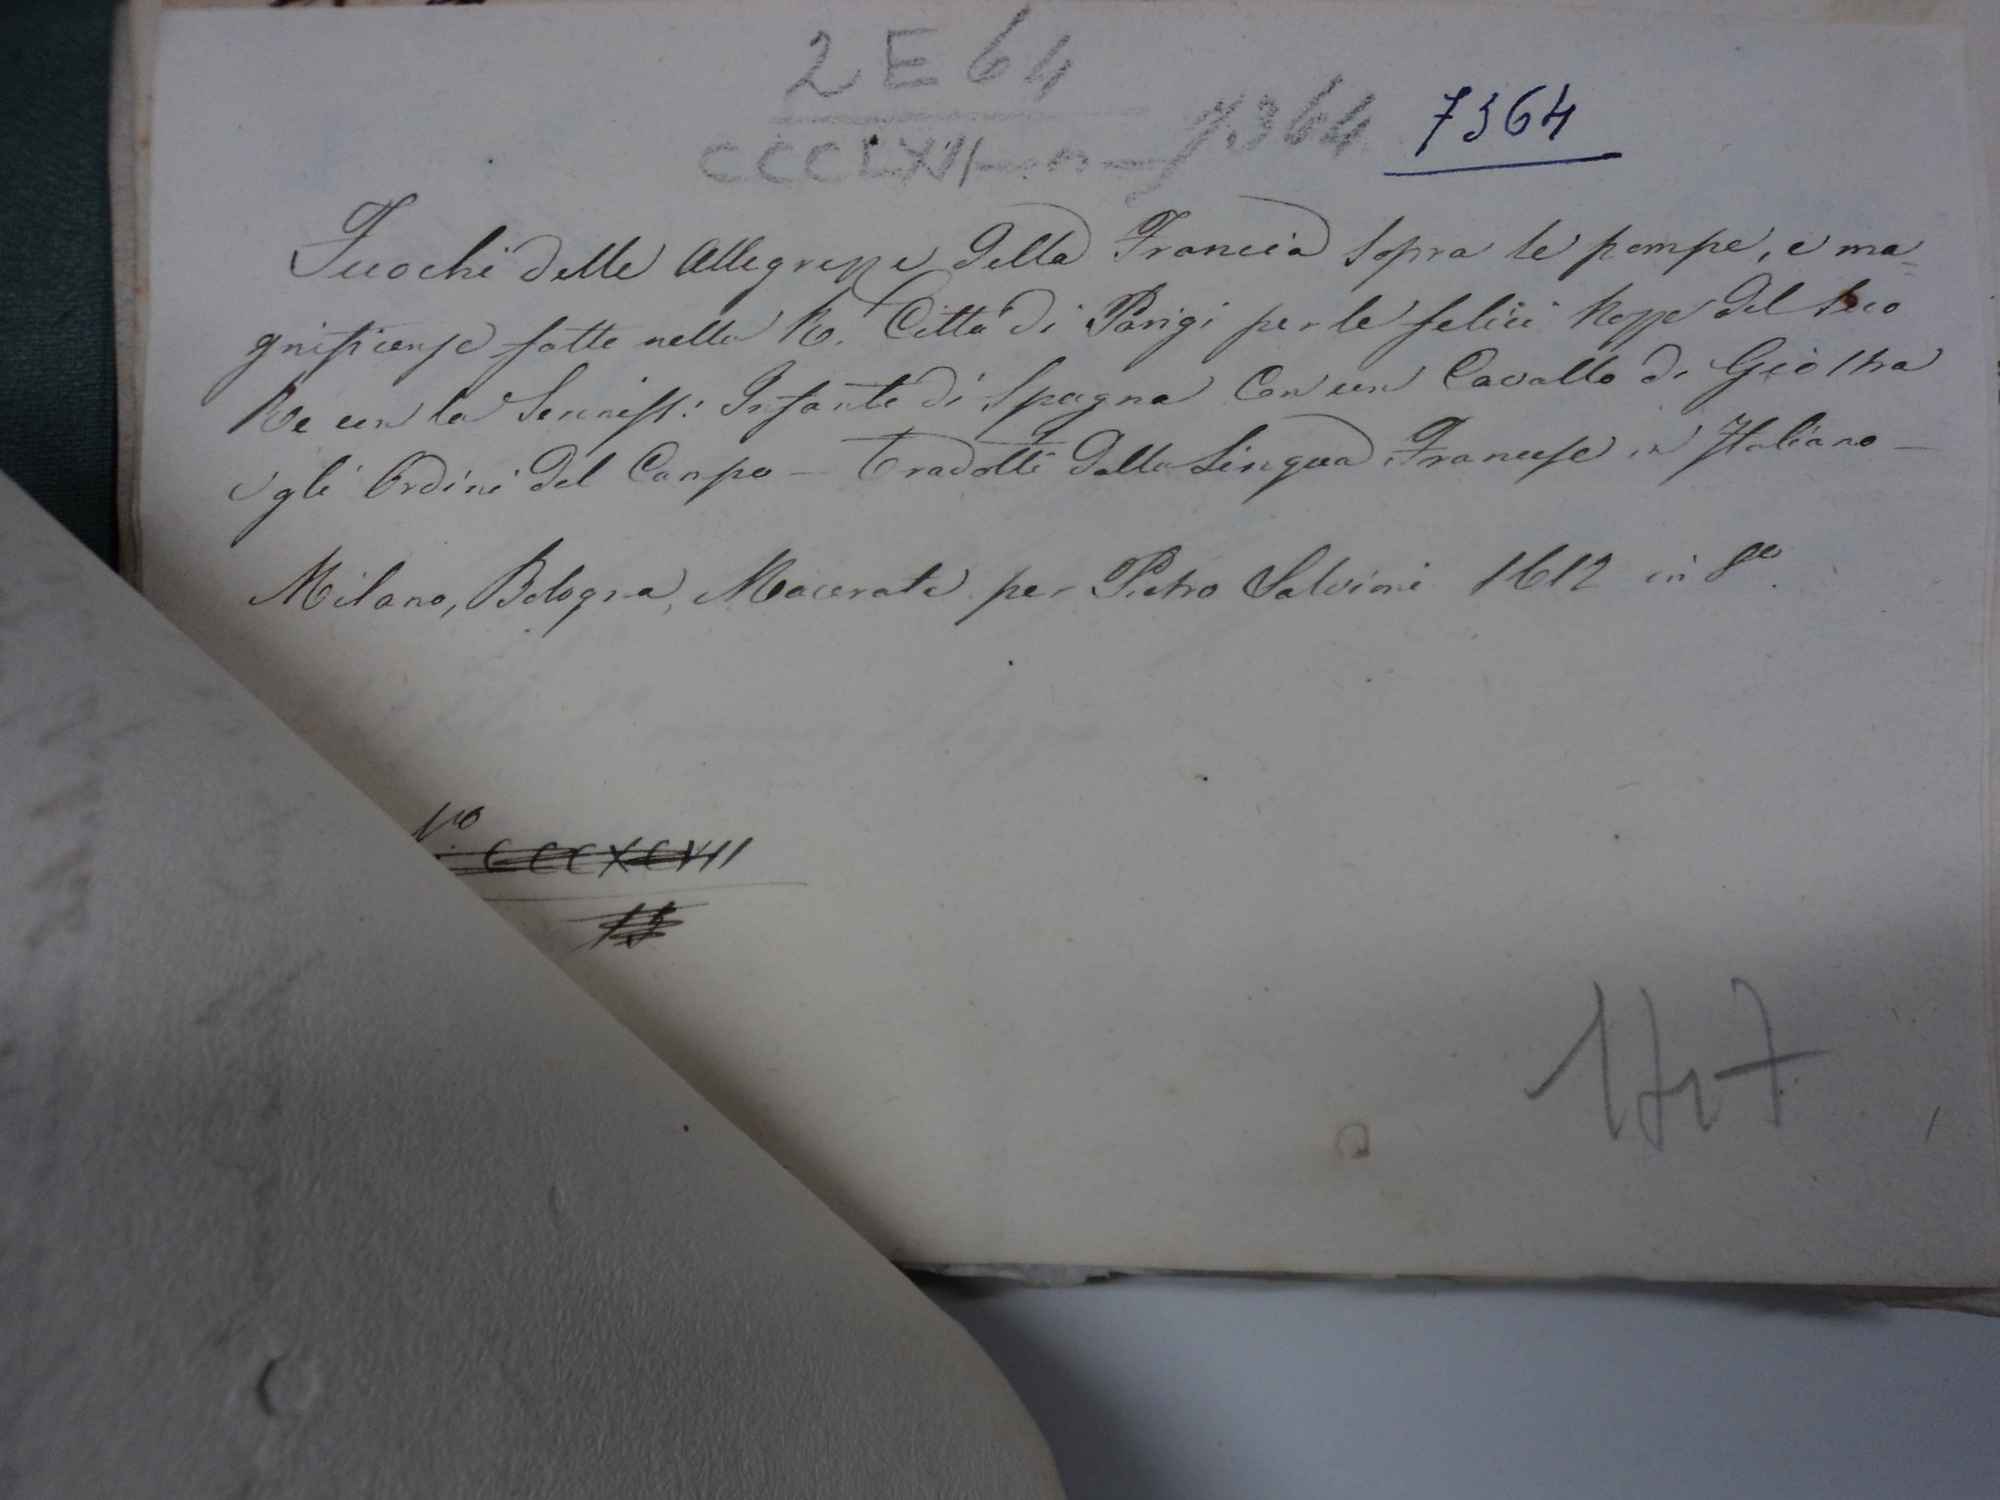 2 E 64
CCCLXVI — n — 7364 7364
Fuochi delle Allegrezze della Francia sopra le pompe, e ma=
gnificenze fatte nella R. Città di Parigi per le felici Nozze del suo
Re con la Sereniss: Infante di Spagna Con un Cavallo di Giostra
e gli Ordini del Campo — Tradotti dalla Lingua Francese in Italiano —
Milano, Bologna, Macerata per Pietro Salvioni 1612 in 8o
No CCCXCVII